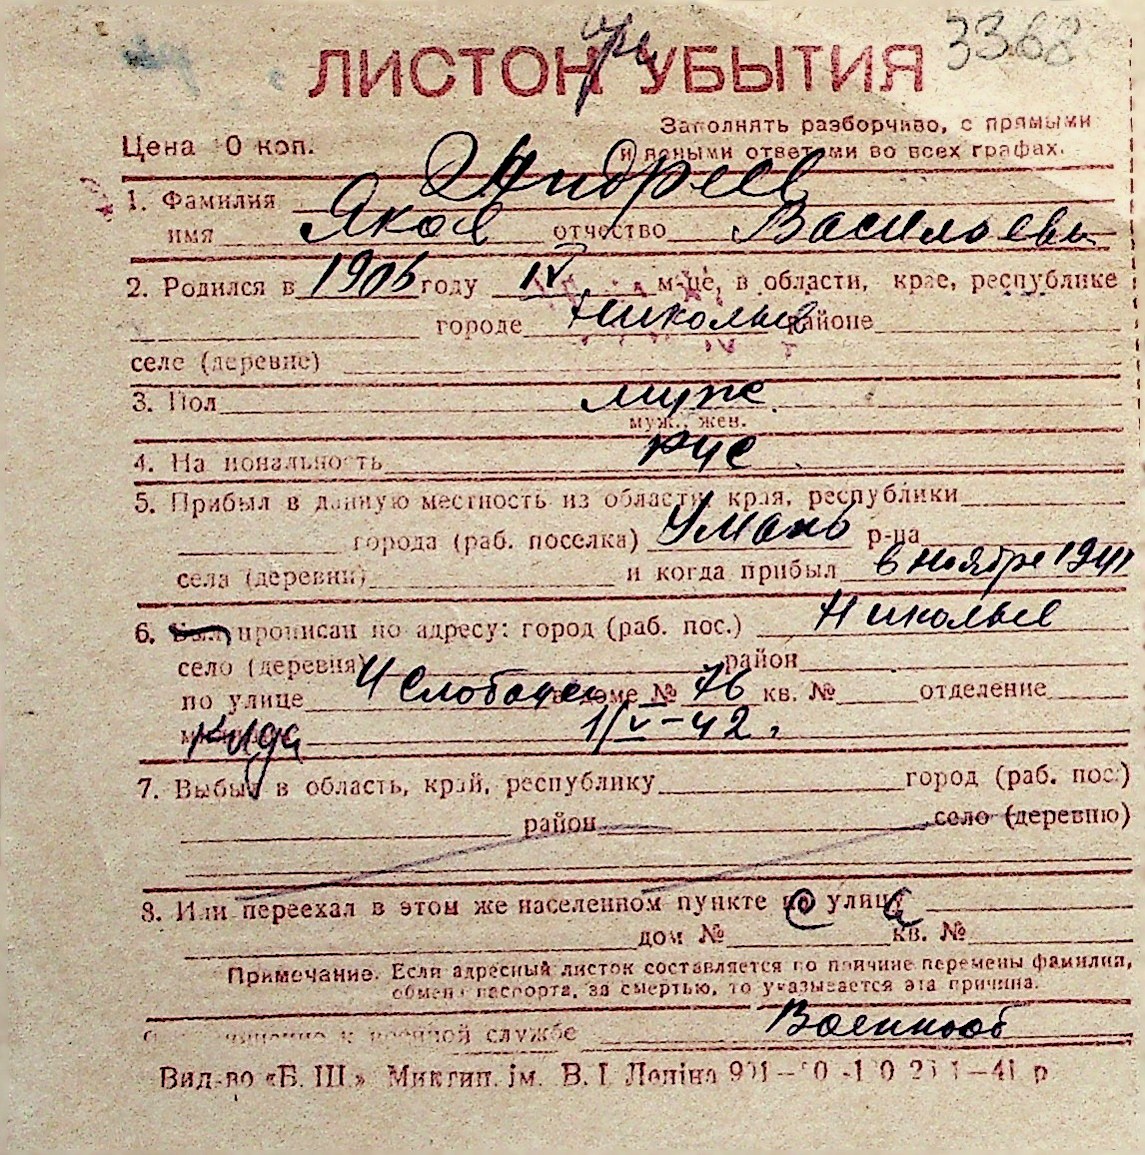 3368
ЛИСТОК УБЫТИЯ
Заполнять разборчиво, с прямыми
Цена 10 коп. и ясными ответами во всех графах.
1. Фамилия Андреев
имя Яков отчество Васильевич
2. Родился в 1906 году IV м-це, в области, крае, республике
городе Николаев районе
селе (деревне)
3. Пол муж.
муж., жен.
4. Национальность рус
5. Прибыл в данную местность из области, края, республики
города (раб. поселка) Умань р-на
села (деревни) и когда прибыл в ноябре 1941
6. Был прописан по адресу: город (раб. пос.) Николаев
село (деревня) район
по улице 4 Слободск в доме № 76 кв. № отделение
милиции куда 1/V-42.
7. Выбыл в область, край, республику город (раб. пос.)
район село (деревню)
8. Или переехал в этом же населенном пункте по улице
дом № кв. №
Примечание. Если адресный листок составляется по причине перемены фамилии,
обмена паспорта, за смертью, то указывается эта причина.
9. Отношение к военной службе Военнооб
Вид-во «Б. Ш.» Микгип. ім. В. І. Леніна